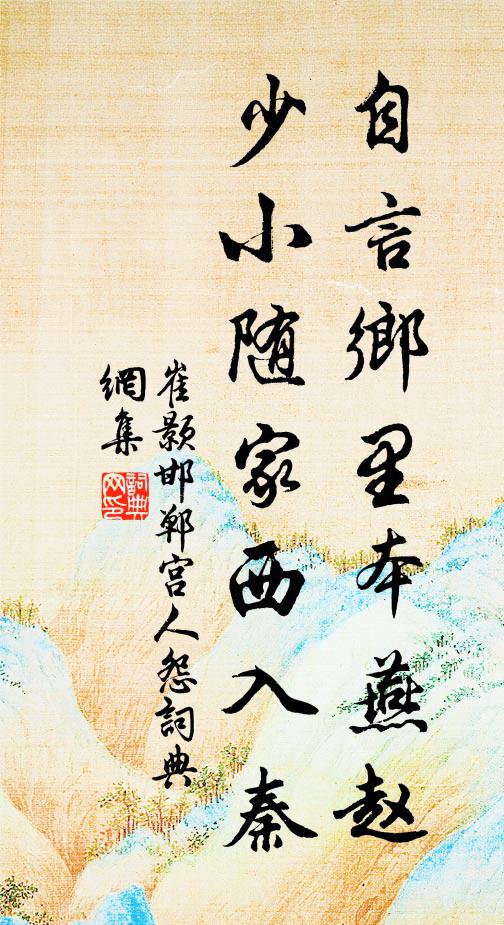 自言鄉里本燕赵
少小随家西入秦
崔颢邯郸宫人怨詞典
網集
詞典
网印